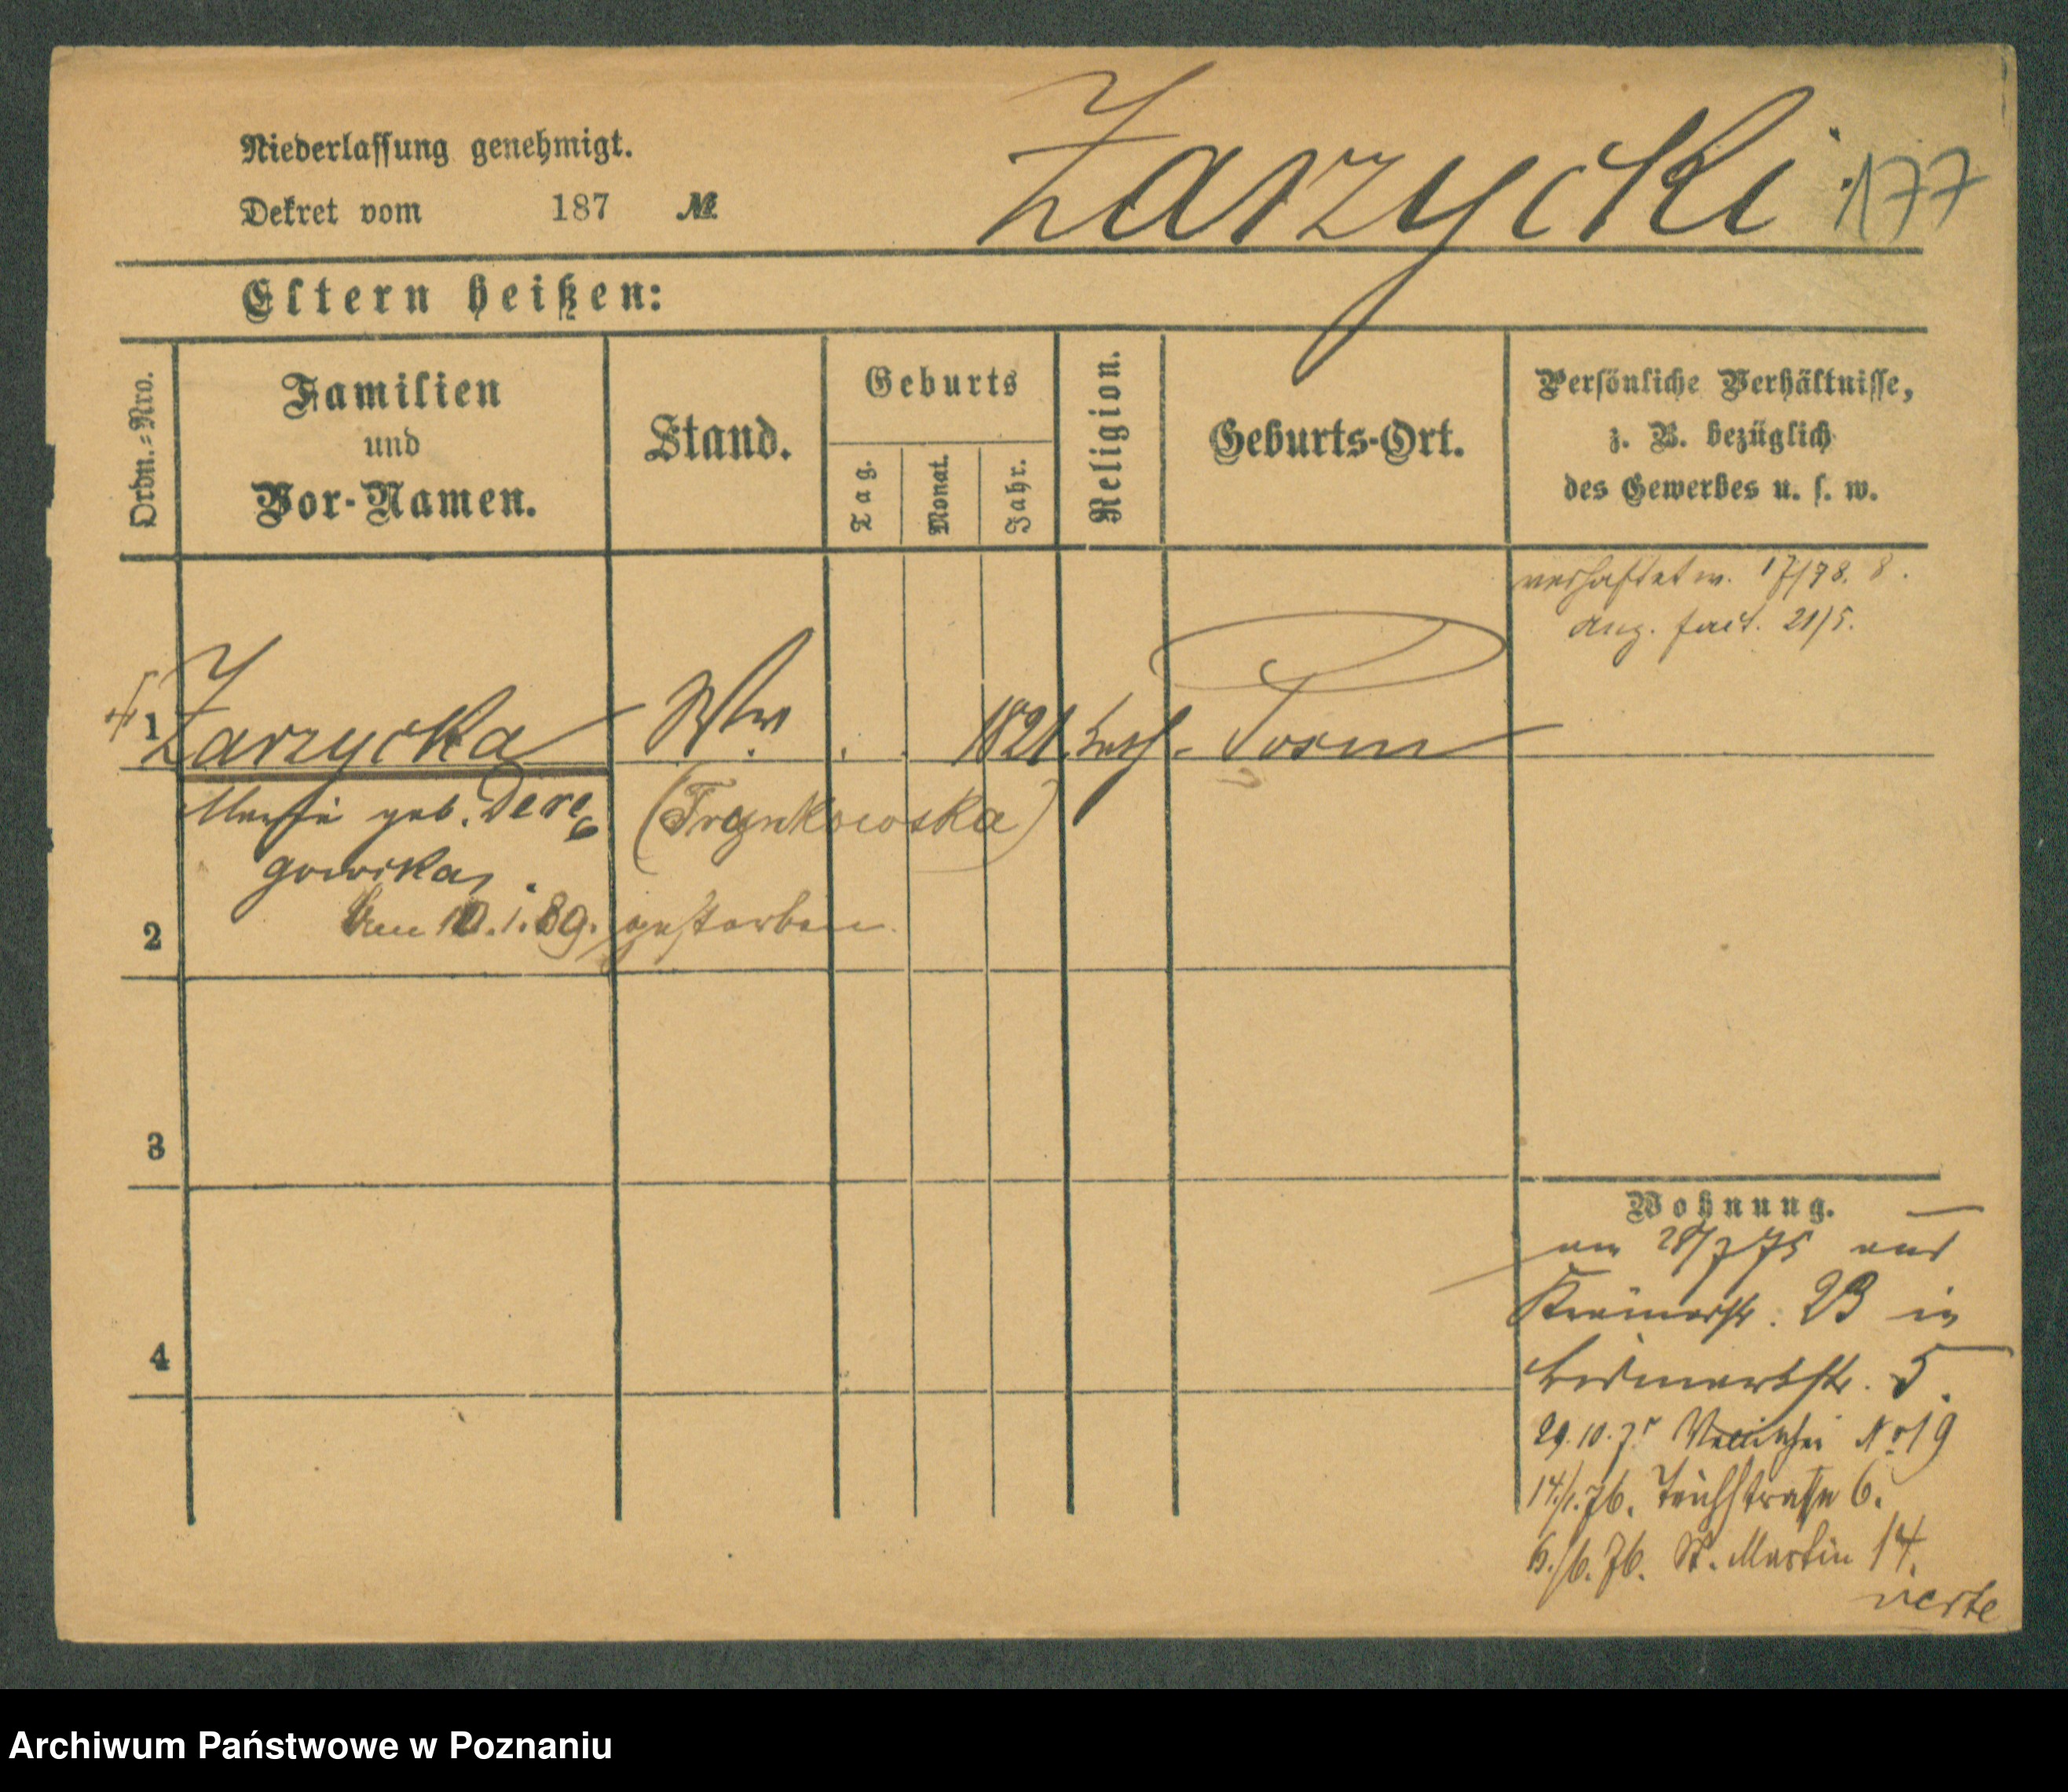 Niederlassung genehmigt.
Dekret vom 187 №
Zarzycki
177
Eltern heißen:
Ordn.-Nro.
Familien
und
Vor-Namen.
Stand.
Geburts
Tag.
Monat.
Jahr.
Religion.
Geburts-Ort.
Persönliche Verhältnisse,
z. B. bezüglich
des Gewerbes u. s. w.
verhaftet w. 17/78. 8.
21/5.
1 Zarzycka Ww 1821. kath. Posen
geb. Dere
gowska, (Frynkowska)
2
10.1.89. gestorben.
3
4
Wohnung.
am 28/7 75 aus
Krämerstr. 23 in
Bismarkstr. 5.
29.10.75 No 19
14/1.76. Teichstraße 6.
6./6.76. St. Martin 14.
verte
Archiwum Państwowe w Poznaniu